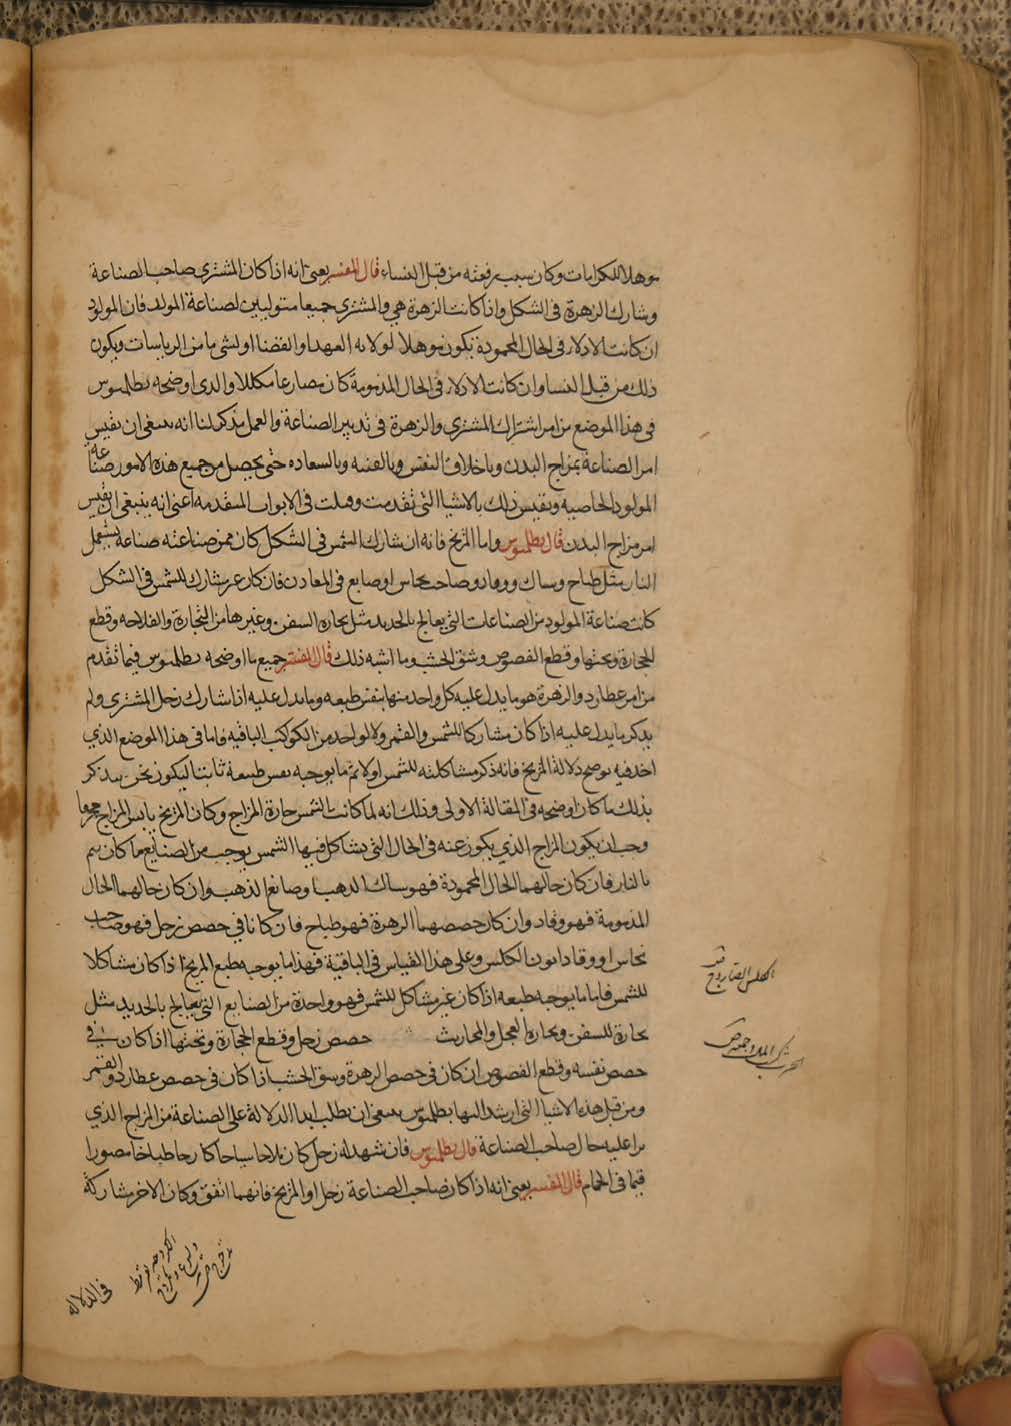 موهلا للكرامات وكان سبب رفعته من قبل النساء قال المفسر يعنى انه اذا كان المشترى صاحب الصناعة
وشارك الزهرة فى الشكل واذا كانت الزهرة هي والمشترى جميعا متوليين لصناعة المولد فان المولود
ان كانت الادلاء فى الحال المحمودة يكون موهلا لولاية العهد او القضا او لشى ما من الرياسات ويكون
ذلك من قبل النسا وان كانت الادلاء فى الحال المذمومة كان مصارعا مكللا والذى اوضحه بطلميوس
فى هذا الموضع من امر اشتراك المشترى والزهرة فى تدبير الصناعة والعمل يذكر لنا انه ينبغى ان نقيس
امر الصناعة بمزاج البدن وباخلاق النفس وبالقنيه وبالسعاده حتى يحصل من جميع هذه الامور صناعة
المولود الخاصيه ونقيس ذلك بالاشيا التى تقدمت وقيلت فى الابواب المتقدمه اعنى انه ينبغى ان نقيس
امر مزاج البدن قال بطلميوس واما المريخ فانه ان شارك الشمس فى الشكل كان ممن صناعته صناعة يستعمل
النار مثل طباح وسباك ووقاد وصاحب نحاس او صايع فى المعادن فان كان غير مشارك للشمس فى الشكل
كانت صناعة المولود من الصناعات التى يعالج بالحديد مثل نجارة السفن وغيرها من النجارة والفلاحه وقطع
الحجارة ونحتها وقطع الفصوص وشق الخشب وما اشبه ذلك قال المفسر جميع ما اوضحه بطلميوس فيما تقدم
من امر عطارد والزهرة هو ما يدل عليه كل واحد منها بنفس طبعه وما يدل عليه اذا شارك زحل المشترى ولم
يذكر ما يدل عليه اذا كان مشاركا للشمس والقمر ولا لواحد من الكواكب الباقيه فاما فى هذا الموضع الذي
اخذ فيه يوضح دلالة المريخ فانه ذكر مشاكلته للشمس اولا ثم ما يوجبه نفس طبيعة ثابتا ليكون نحن نتذكر
بذلك ما كان اوضحه فى المقالة الاولى وذلك انه لما كانت الشمس حارة المزاج وكان المريخ يابس المزاج محرقا
وجب ان يكون المزاج الذي يكون عنه فى الحال التى يشاكل فيها الشمس يوجب من الصنايع ما كان يتم
بالنار فان كان حالهما الحال المحمودة فهو سباك الذهب او صانع الذهب وان كان حالهما الحال
المذمومة فهو وقاد وان كان حصصهما الزهرة فهو طباح فان كانا في حصص زحل فهو صاحب
نحاس او وقاد اتون الكلس وعلى هذا القياس فى الباقية فهذا ما يوجبه طبع المريخ اذا كان مشاكلا
للشمس فاما ما يوجبه طبعه اذا كان غير مشاكل للشمس فهو واحدة من الصنايع التى يعالج بالحديد مثل
نجارة السفن ونجارة العجل والمحاريث حصص زحل وقطع الحجارة ونحتها اذا كان في
حصص نفسه وقطع الفصوص ان كان فى حصص الزهرة وشق الخشب اذا كان فى حصص عطارد والقمر
ومن قبل هذه الاشيا التى ارشدنا اليها بطلميوس ينبغى ان يطلب ابدا الدلالة على الصناعة من المزاج الذي
عليه حال صاحب الصناعة قال بطلميوس فان شهد له زحل كان ملاحا سباحا طباخا مصورا
قيما فى الحمام قال المفسر يعنى انه اذا كان صاحب الصناعة زحل او المريخ فانهما اتفق وكان الاخر مشاركه
الكلس الصاروج
فى الدلاله